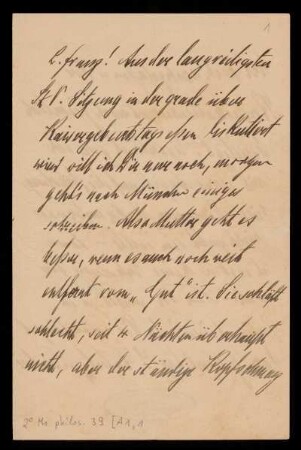 1
L. Franz! Aus der langweiligsten
St. V. Sitzung in der grade über
Kaisergeburtstagsessen diskutiert
wird will ich Dir nur noch, morgen
geht's nach München einiges
schreiben. Also Mutter geht es
besser, wenn es auch noch weit
entfernt vom „Gut" ist. Sie schläft
schlecht, seit 4 Nächten überhaupt
nicht, aber der ständige Kopfschmerz
2° Ms philos. 39 [A 1, 1